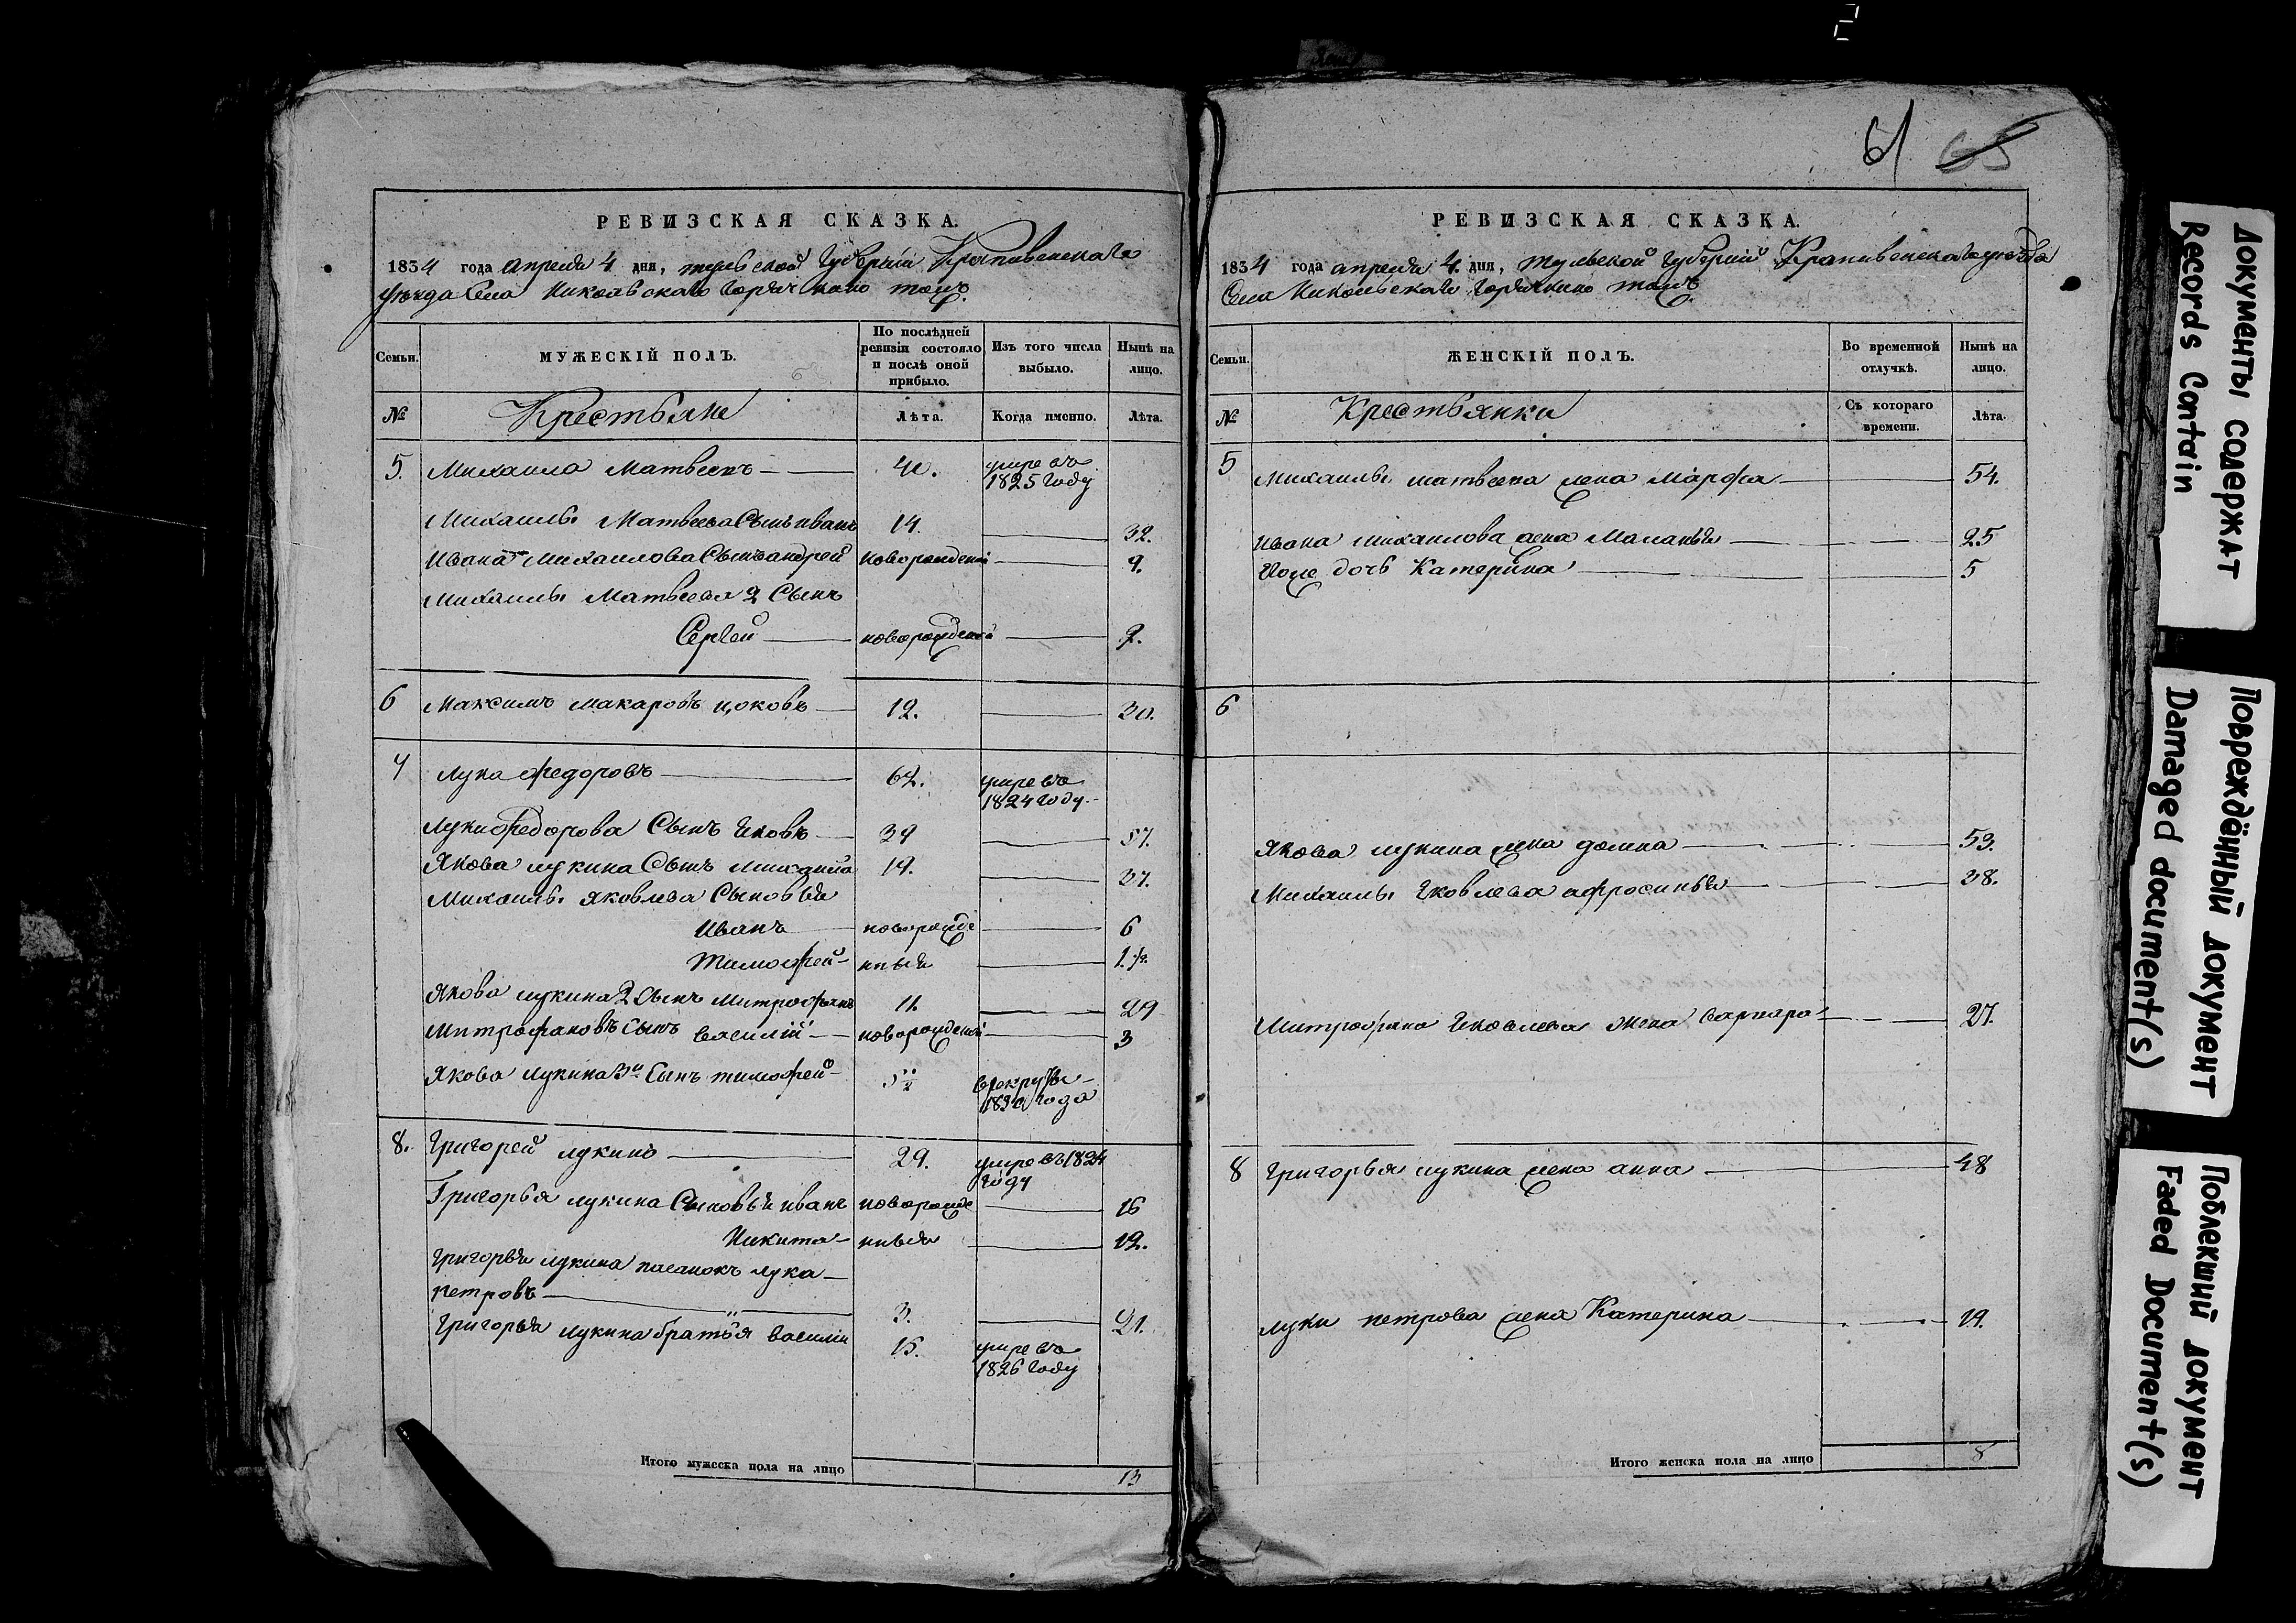 2
61 65
РЕВИЗСКАЯ СКАЗКА.
1834 года апреля 4 дня, тульской Губернии Крапивенскаго
уезда Села Никольскаго тожъ
Семьи.
МУЖЕСКІЙ ПОЛЪ.
По послѣдней ревизіи состояло и послѣ оной прибыло.
Изъ того числа выбыло.
Нынѣ на лицо.
№
Крестьяне
Лѣта.
Когда именно.
Лѣта.
5. Михаила Матвеевъ умре въ
1825 году
Михаилы Матвеева Сынъ иванъ 14. 32.
Ивана Михаилова Сынъ андрей новорожденой 9.
Михаилы Матвеева 2 Сынъ
Сергей новорожденой
6 Максимъ макаровъ 12. 30.
7 Лука федоровъ умре въ
1824 году
Луки Федорова Сынъ Яковъ 39 57.
Якова лукина Сынъ михайла 19. 37.
Михаилы Яковлева Сыновья
Иванъ новорожде 6
Тимофей нныя
Якова лукина 2 Сынъ Митрофанъ 11. 29
Митрофановъ сынъ василий новорожденой 3
Якова лукина 3й Сынъ тимофей 5 1/2 в рекруты
года
8. Григорей лукинъ 29. умре въ 1824
году
Григорья лукина Сыновья иванъ новорожде 16
Никита нныя 12.
Григорья лукина пасынокъ лука
петровъ 3. 21.
Григорья лукина братья василий 15. умре въ
1826 году
Итого мужеска пола на лицо 13
РЕВИЗСКАЯ СКАЗКА.
1834 года апреля 4. дня, Тульской Губернии Крапивенскаго уезда
Села Никольскаго тожъ
Семьи.
ЖЕНСКІЙ ПОЛЪ.
Во временной отлучкѣ.
Нынѣ на лицо.
№
Крестьянки
Съ котораго времени.
Лѣта.
5 Михаилы матвеева жена Марфа 54.
Ивана михаилова жена Маланья 25
Ихже дочь Катерина 5
6
Якова лукина жена домна 53.
Михаилы Яковлева афросинья 38.
Митрофана Яковлева жена варвара 27.
8 Григорья лукина жена анна 48
Луки петрова жена Катерина 19.
Итого женска пола на лицо 8
Документы содержат
Records Contain
Повреждённый документ
Damaged document(s)
Поблекший документ
Faded Document(s)